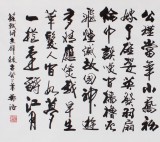 公瑾當年小喬初
嫁了雄姿英發羽扇
綸巾談笑間檣櫓
灰飛煙滅故國神遊
多情應笑我早生
華髮人生如夢
一樽還酹江月